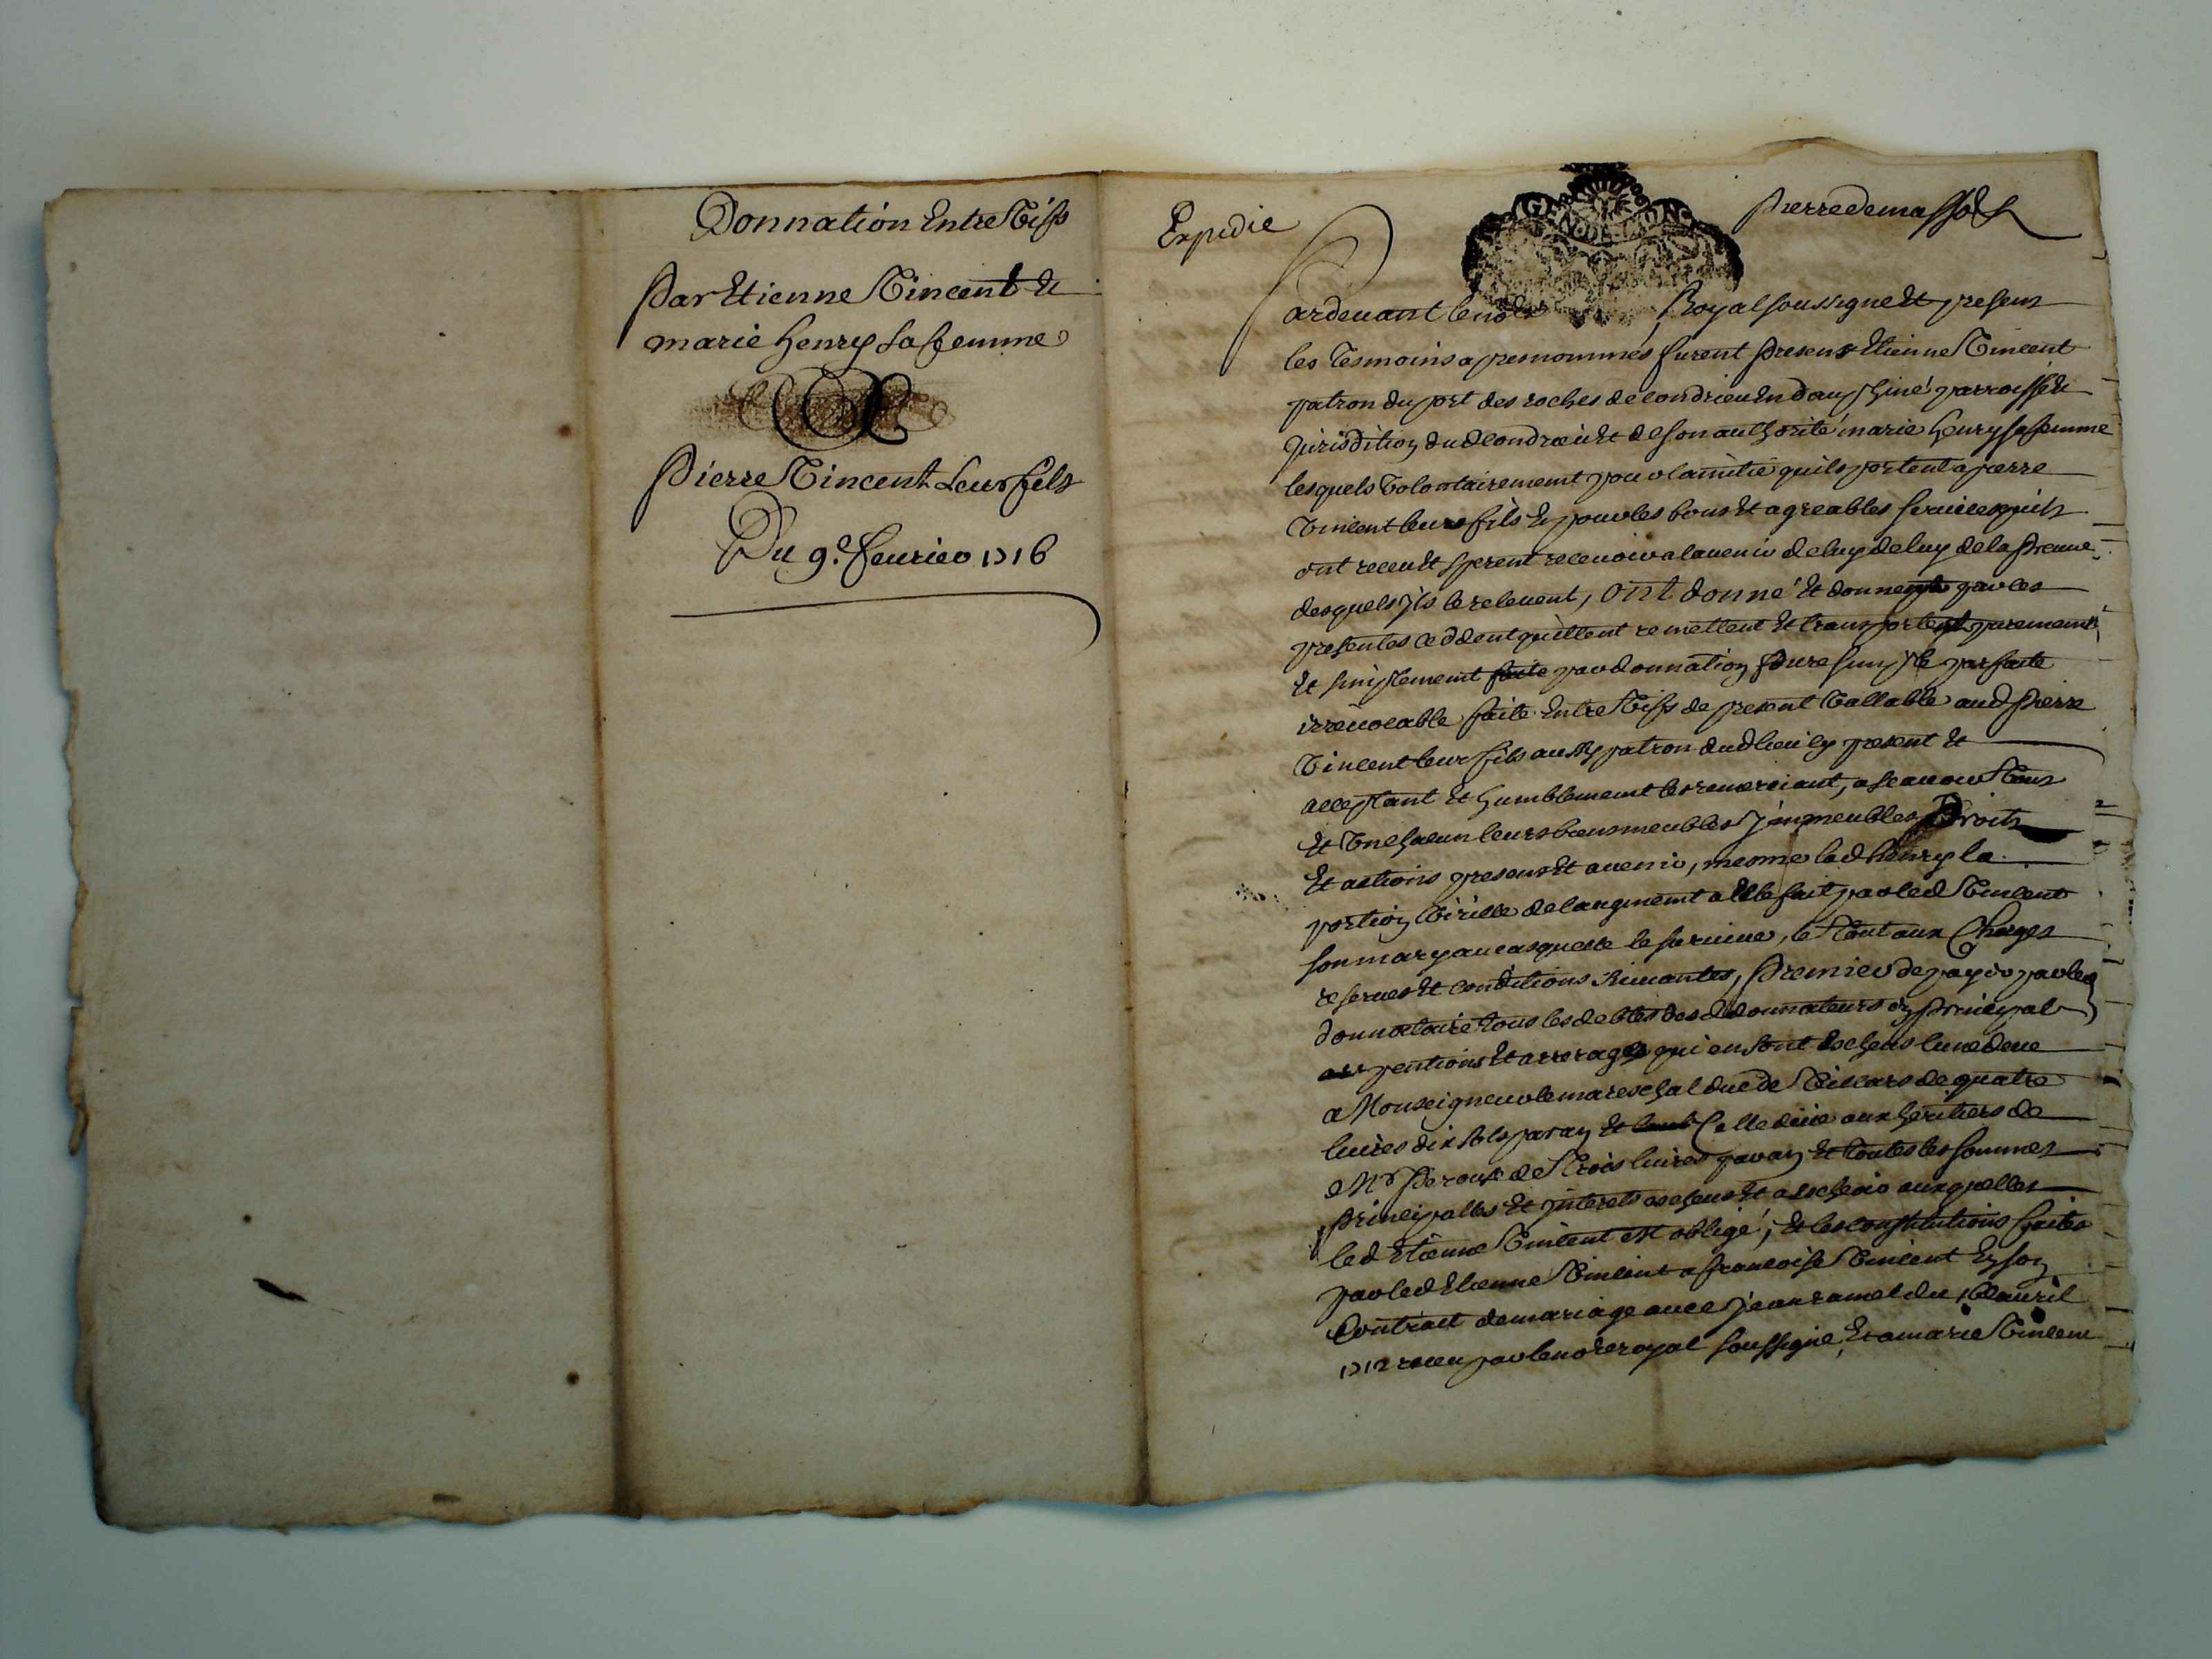 Donnation Entre Vifs
Par Etienne Vincent Et
marie henry sa femme
Pierre Vincent Leur fils
Du 9.e feurier 1716
Expedie
Pierre demassod
Pardeuant le no.re Royal soussigné Et presens
les Tesmoins apres nommés furent Presens Etienne Vincent
patron du port des roches de condrieu En dauphiné parroisse Et
Jurisdition dud condrieu Et de son authorité marie henry sa femme
lesquels Volontairement pour lamitié quils portent a pierre
Vincent leur fils Et pour les bons Et agreables seruices quils
ont receu Et sperent receuoir a lauenir de luy de luy de la Preuue
desquels jls le releuent, ont donné Et donnent par les
presentes ceddent quittent remettent Et transportent purement
Et simplement faite par donnation Pure simple parfaite
irreuocable faite Entre Vifs de present Vallable aud Pierre
Vincent leur fils aussy patron dud lieu icy present Et
acceptant Et humblement les remerciant, a scauoir Tous
Et Vnchacun leurs biens meubles jmmeubles Droits
Et actions presens Et auenir, mesme lad henry la
portion Virille de laugment a Elle fait par led Vincent
son mary au cas quelle le suruiue, le Tout aux Charges
reserues Et conditions suiuantes, Premier de payer par led
donnataire tous les debtes desd donnateurs en Principal
pentions Et arrerages qui en sont Escheus lune deue
a Monseigneur le mareschal duc de Villars de quatre
liures dix sols par an Et Celle deüe aux heritiers de
Mr Peroux de Trois liures par an Et toutes les sommes
Principalles Et jnterets escheus Et a escheoir auxquelles
led Etienne Vincent est obligé, Et les constitutions faites
par led Etienne Vincent a francoise Vincent En son
Contract de mariage auec jean ramel du auril
1712 receu par le no.re royal soussigné, Et a marie Vincent